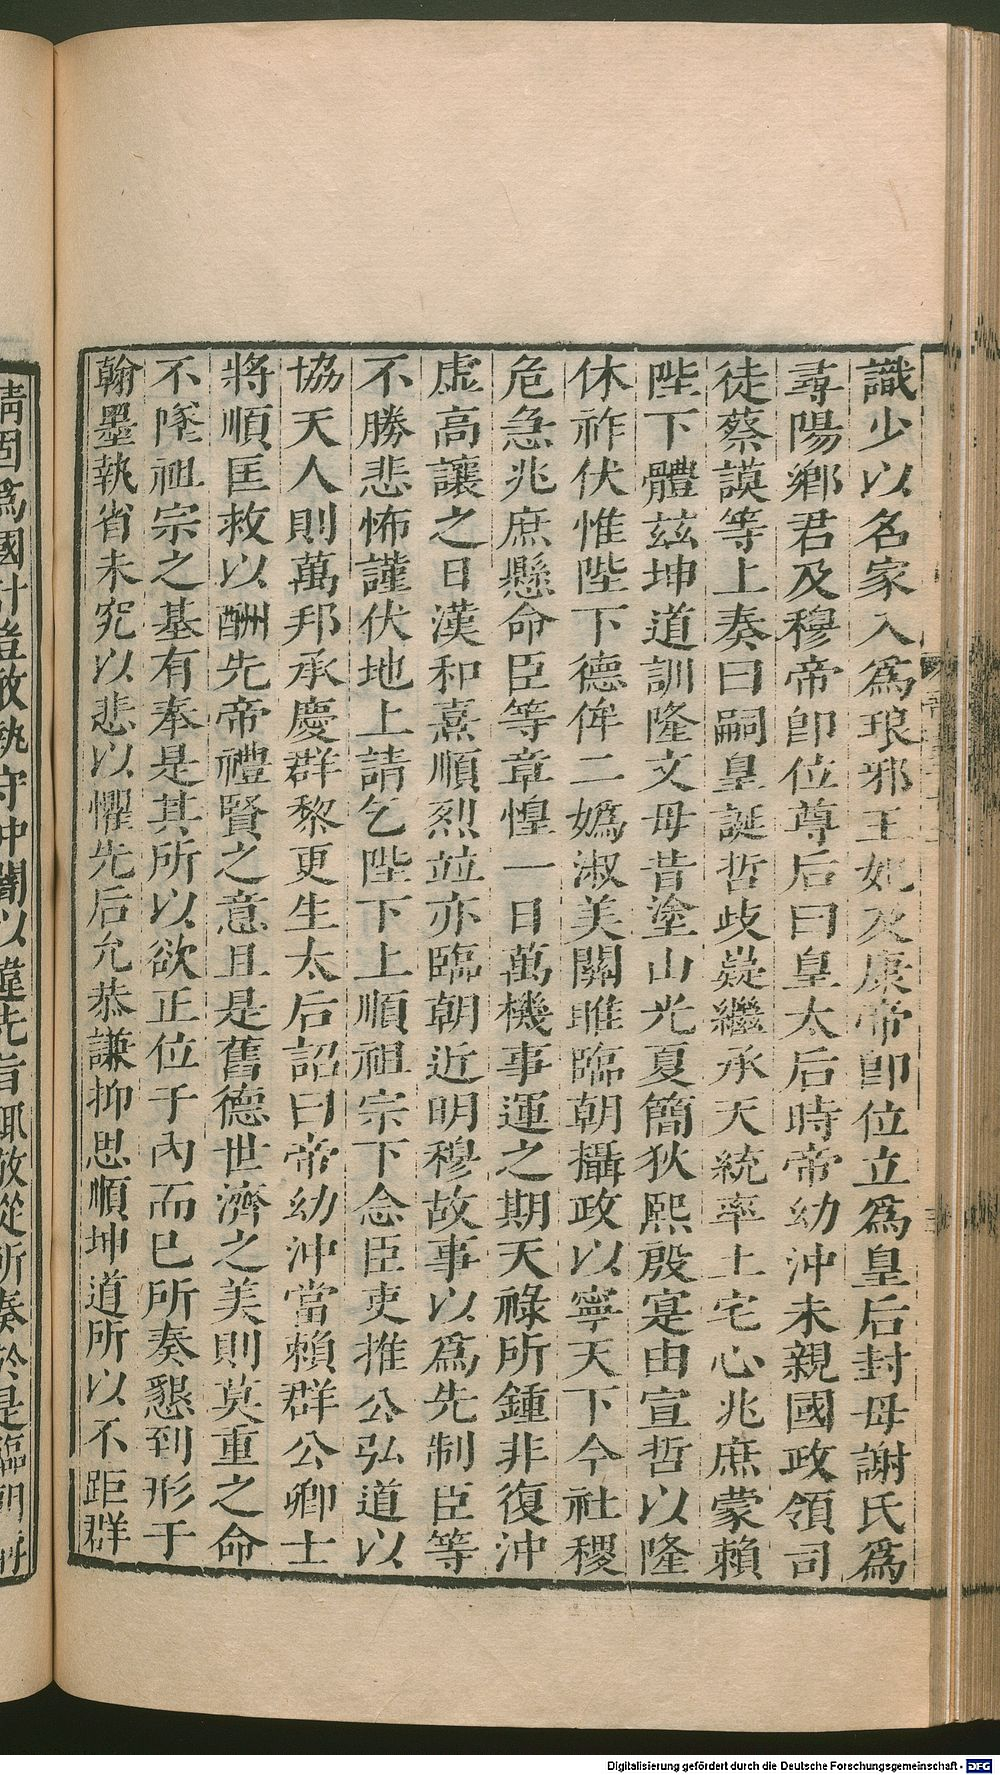 識少以名家入爲琅邪王妃及康帝卽位立爲皇后封母謝氏爲
尋陽鄉君及穆帝卽位尊后曰皇太后時帝幼沖未親國政領司
徒蔡謨等上奏曰嗣皇誕哲歧嶷繼承天統率土宅心兆庶蒙賴
陛下體茲坤道訓隆文母昔塗山光夏簡狄熙殷寔由宣哲以隆
休祚伏惟陛下德侔二嬀淑美關雎臨朝攝政以寧天下今社稷
危急兆庶懸命臣等章惶一日萬機事運之期天祿所鍾非復沖
虛高讓之日漢和熹順烈竝亦臨朝近明穆故事以爲先制臣等
不勝悲怖謹伏地上請乞陛下上順祖宗下念臣吏推公弘道以
協天人則萬邦承慶群黎更生太后詔曰帝幼沖當賴群公卿士
將順匡救以酬先帝禮賢之意且是舊德世濟之美則莫重之命
不墜祖宗之基有奉是其所以欲正位于內而已所奏懇到形于
翰墨執省未究以悲以懼先后允恭謙抑思順坤道所以不距群
情固爲國計豈敢執守沖闇以違先旨輒敬從所奏於是臨朝
Digitalisierung gefördert durch die Deutsche Forschungsgemeinschaft - DFG